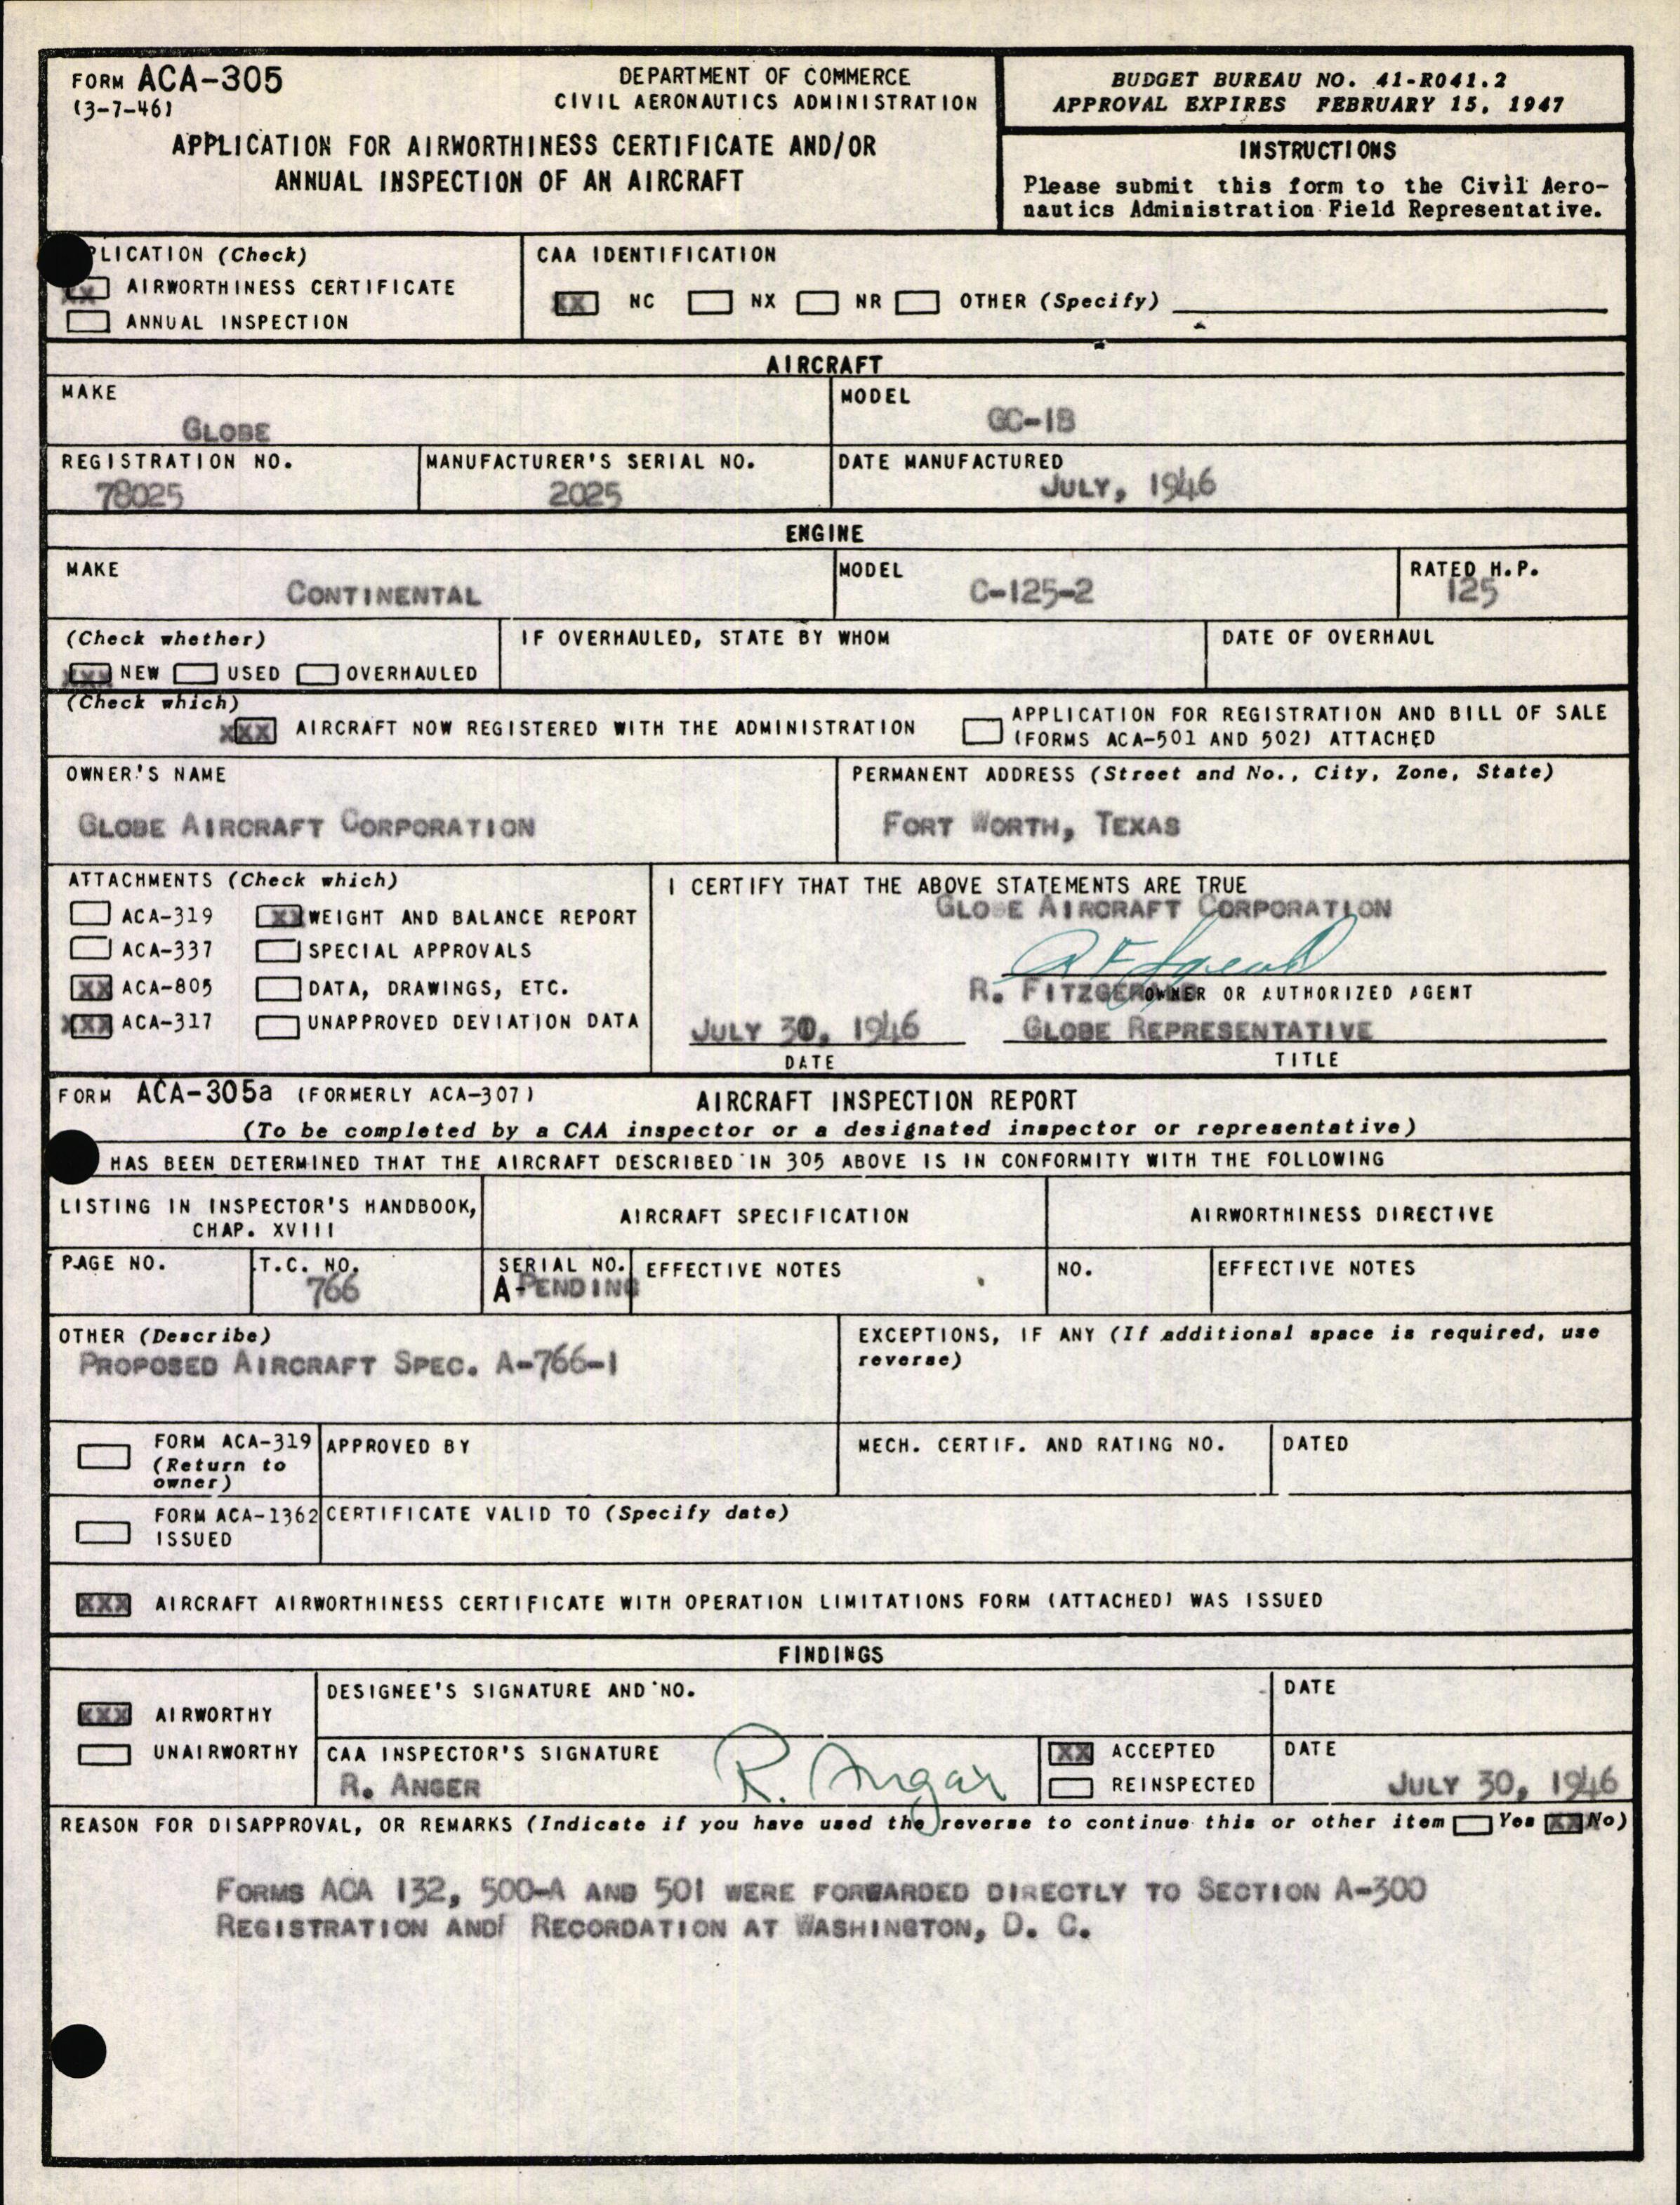 FORM ACA-305
(3-7-46)
DEPARTMENT OF COMMERCE
CIVIL AERONAUTICS ADMINISTRATION
APPLICATION FOR AIRWORTHINESS CERTIFICATE AND/OR
ANNUAL INSPECTION OF AN AIRCRAFT
BUDGET BUREAU NO. 41-R041.2
APPROVAL EXPIRES FEBRUARY 15, 1947
INSTRUCTIONS
Please submit this form to the Civil Aero-
nautics Administration Field Representative.
PLICATION (Check)
XX AIRWORTHINESS CERTIFICATE
ANNUAL INSPECTION
CAA IDENTIFICATION
XX NC NX NR OTHER (Specify)
AIRCRAFT
MAKE
GLOBE
MODEL
GC-1B
REGISTRATION NO.
78025
MANUFACTURER'S SERIAL NO.
2025
DATE MANUFACTURED
JULY, 1946
ENGINE
MAKE
CONTINENTAL
MODEL
C-125-2
RATED H.P.
125
(Check whether)
XXX NEW USED OVERHAULED
IF OVERHAULED, STATE BY WHOM
DATE OF OVERHAUL
(Check which)
XXX AIRCRAFT NOW REGISTERED WITH THE ADMINISTRATION
APPLICATION FOR REGISTRATION AND BILL OF SALE
(FORMS ACA-501 AND 502) ATTACHED
OWNER'S NAME
GLOBE AIRCRAFT CORPORATION
PERMANENT ADDRESS (Street and No., City, Zone, State)
FORT WORTH, TEXAS
ATTACHMENTS (Check which)
ACA-319 XX WEIGHT AND BALANCE REPORT
ACA-337 SPECIAL APPROVALS
XX ACA-805 DATA, DRAWINGS, ETC.
XXX ACA-317 UNAPPROVED DEVIATION DATA
I CERTIFY THAT THE ABOVE STATEMENTS ARE TRUE
GLOBE AIRCRAFT CORPORATION
R. FITZGERALD OWNER OR AUTHORIZED AGENT
JULY 30, 1946 GLOBE REPRESENTATIVE
DATE TITLE
FORM ACA-305a (FORMERLY ACA-307)
AIRCRAFT INSPECTION REPORT
(To be completed by a CAA inspector or a designated inspector or representative)
HAS BEEN DETERMINED THAT THE AIRCRAFT DESCRIBED IN 305 ABOVE IS IN CONFORMITY WITH THE FOLLOWING
LISTING IN INSPECTOR'S HANDBOOK,
CHAP. XVIII
AIRCRAFT SPECIFICATION
AIRWORTHINESS DIRECTIVE
PAGE NO.
T.C. NO.
766
SERIAL NO.
A-PENDING
EFFECTIVE NOTES
NO.
EFFECTIVE NOTES
OTHER (Describe)
PROPOSED AIRCRAFT SPEC. A-766-1
EXCEPTIONS, IF ANY (If additional space is required, use
reverse)
FORM ACA-319
(Return to
owner)
APPROVED BY
MECH. CERTIF. AND RATING NO.
DATED
FORM ACA-1362
ISSUED
CERTIFICATE VALID TO (Specify date)
XXX AIRCRAFT AIRWORTHINESS CERTIFICATE WITH OPERATION LIMITATIONS FORM (ATTACHED) WAS ISSUED
FINDINGS
XXX AIRWORTHY
UNAIRWORTHY
DESIGNEE'S SIGNATURE AND NO.
DATE
CAA INSPECTOR'S SIGNATURE
R. ANGER R. Angar
XX ACCEPTED
REINSPECTED
DATE
JULY 30, 1946
REASON FOR DISAPPROVAL, OR REMARKS (Indicate if you have used the reverse to continue this or other item Yes XX No)
FORMS ACA 132, 500-A AND 501 WERE FORWARDED DIRECTLY TO SECTION A-300
REGISTRATION AND RECORDATION AT WASHINGTON, D. C.